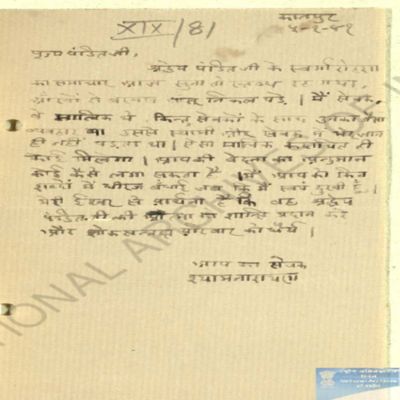 कानपुर
XIX/81
५-१-४१
पूज्य पंडित जी,
श्रद्धेय पंडित जी के स्वर्गारोहण
का समाचार आज सुना तो स्तब्ध रह गया
आँखों से बरबस आँसू निकल पड़े। मैं सेवक,
वे मालिक थे किन्तु सेवकों के साथ उनका ऐसा
व्यवहार था उससे स्वामी और सेवक में भेद जान
ही नहीं पड़ता था। ऐसा मालिक कदाचित ही
कोई मिलेगा। आपकी वेदना का अनुमान
कोई कैसे लगा सकता है। मैं आपको किन
शब्दों में धीरज बंधाऊं जब कि मैं स्वयं दुखी हूँ।
मेरी ईश्वर से प्रार्थना है कि वह श्रद्धेय
पंडित जी की आत्मा को शान्ति प्रदान करे
और शोकसन्तप्त परिवार को धैर्य।
आप का सेवक
श्यामनारायण